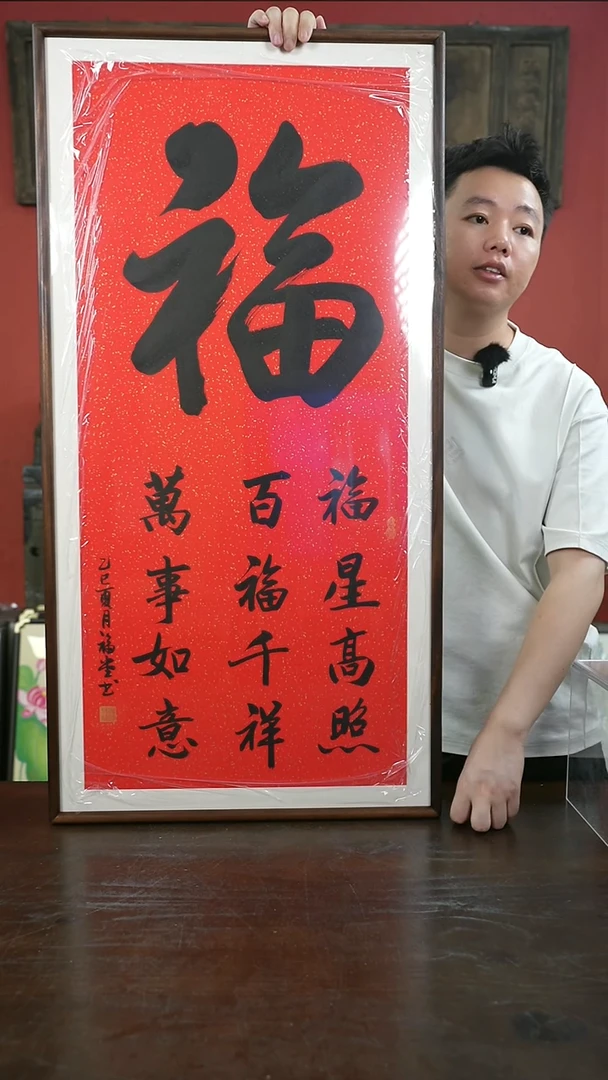 福
福星高照
百福千祥
萬事如意
乙巳夏月福堂书